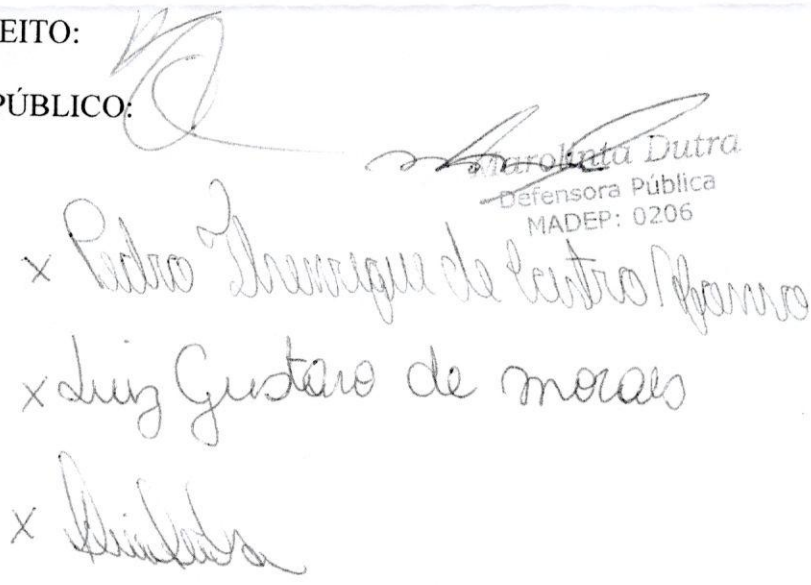 EITO:
PÚBLICO:
Marolinta Dutra
Defensora Pública
MADEP: 0206
x Pedro Henrique de Castro
x Luiz Gustavo de morais
x